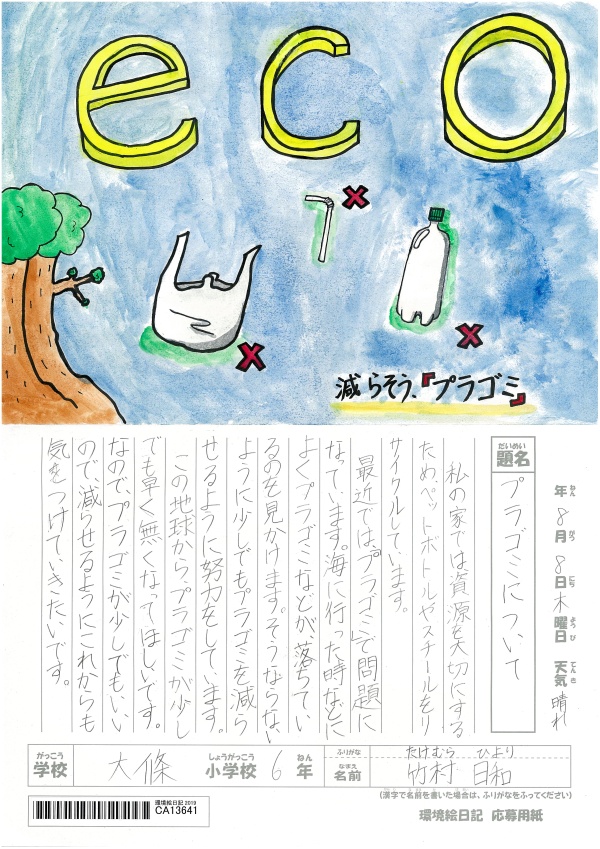 eco
減らそう、『プラゴミ』
年 8月 8日 木曜日 天気 晴れ
ねん がつ にち ようび てんき
だいめい
題名
プラゴミについて
私の家では資源を大切にする
ため、ペットボトルやスチールをリ
サイクルしています。
最近では、「プラゴミ」で問題に
なっています。海に行った時などに
よくプラゴミなどが、落ちてい
るのを見かけます。そうならない
ように少しでもプラゴミを減ら
せるように努力をしています。
この地球から、プラゴミが少し
でも早く無くなってほしいです。
なので、プラゴミが少しでもいい
ので、減らせるようにこれからも
気をつけていきたいです。
がっこう しょうがっこう ねん ふりがな たけむら ひより
学校 大條 小学校 6年 なまえ 名前 竹村 日和
(漢字で名前を書いた場合は、ふりがなをふってください)
環境絵日記 2019
CA13641
環境絵日記 応募用紙